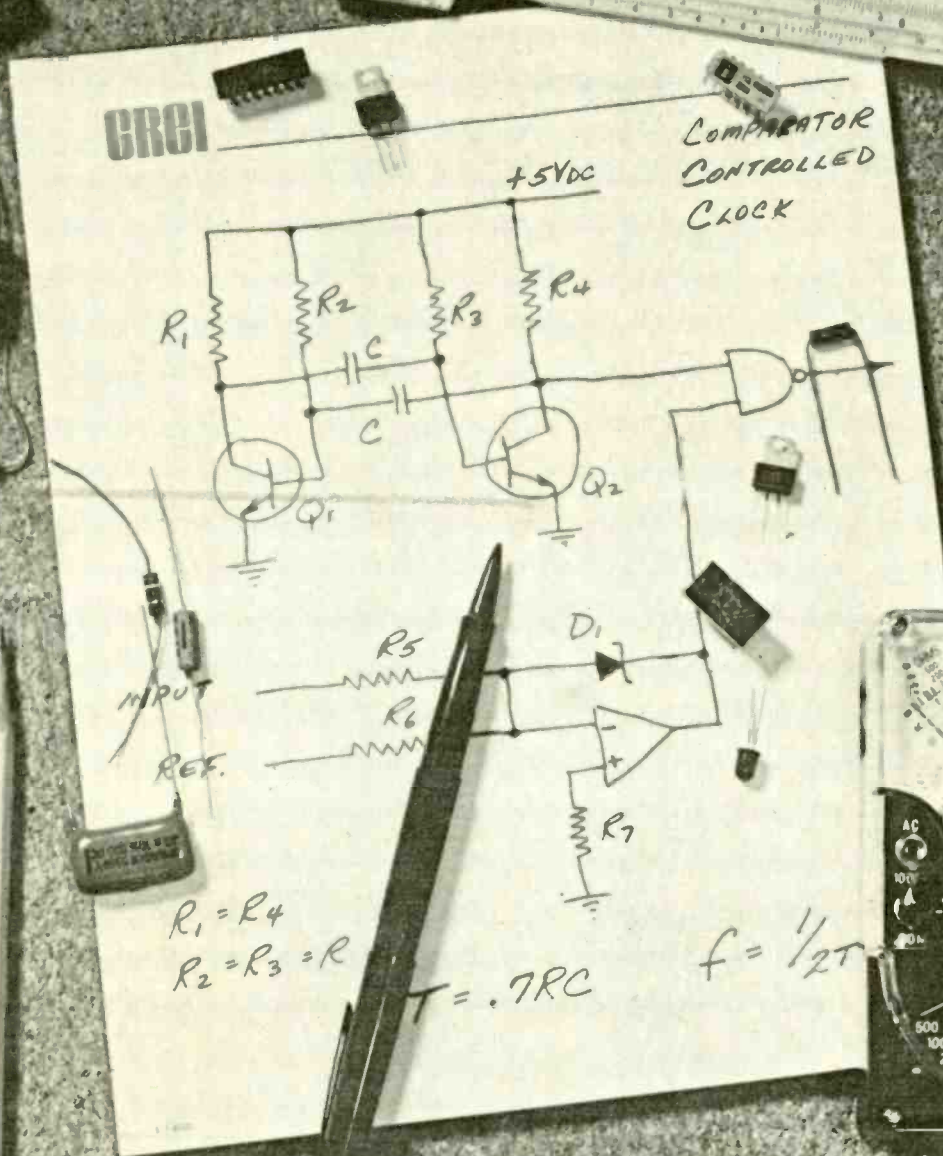 GRCI
COMPARATOR
CONTROLLED
CLOCK
+5VDC
R1
R2
R3
R4
C
C
Q1
Q2
D1
R5
INPUT
R6
REF.
-
+
R7
R1 = R4
R2 = R3 = R
T = .7RC
f = 1/2T
AC
500